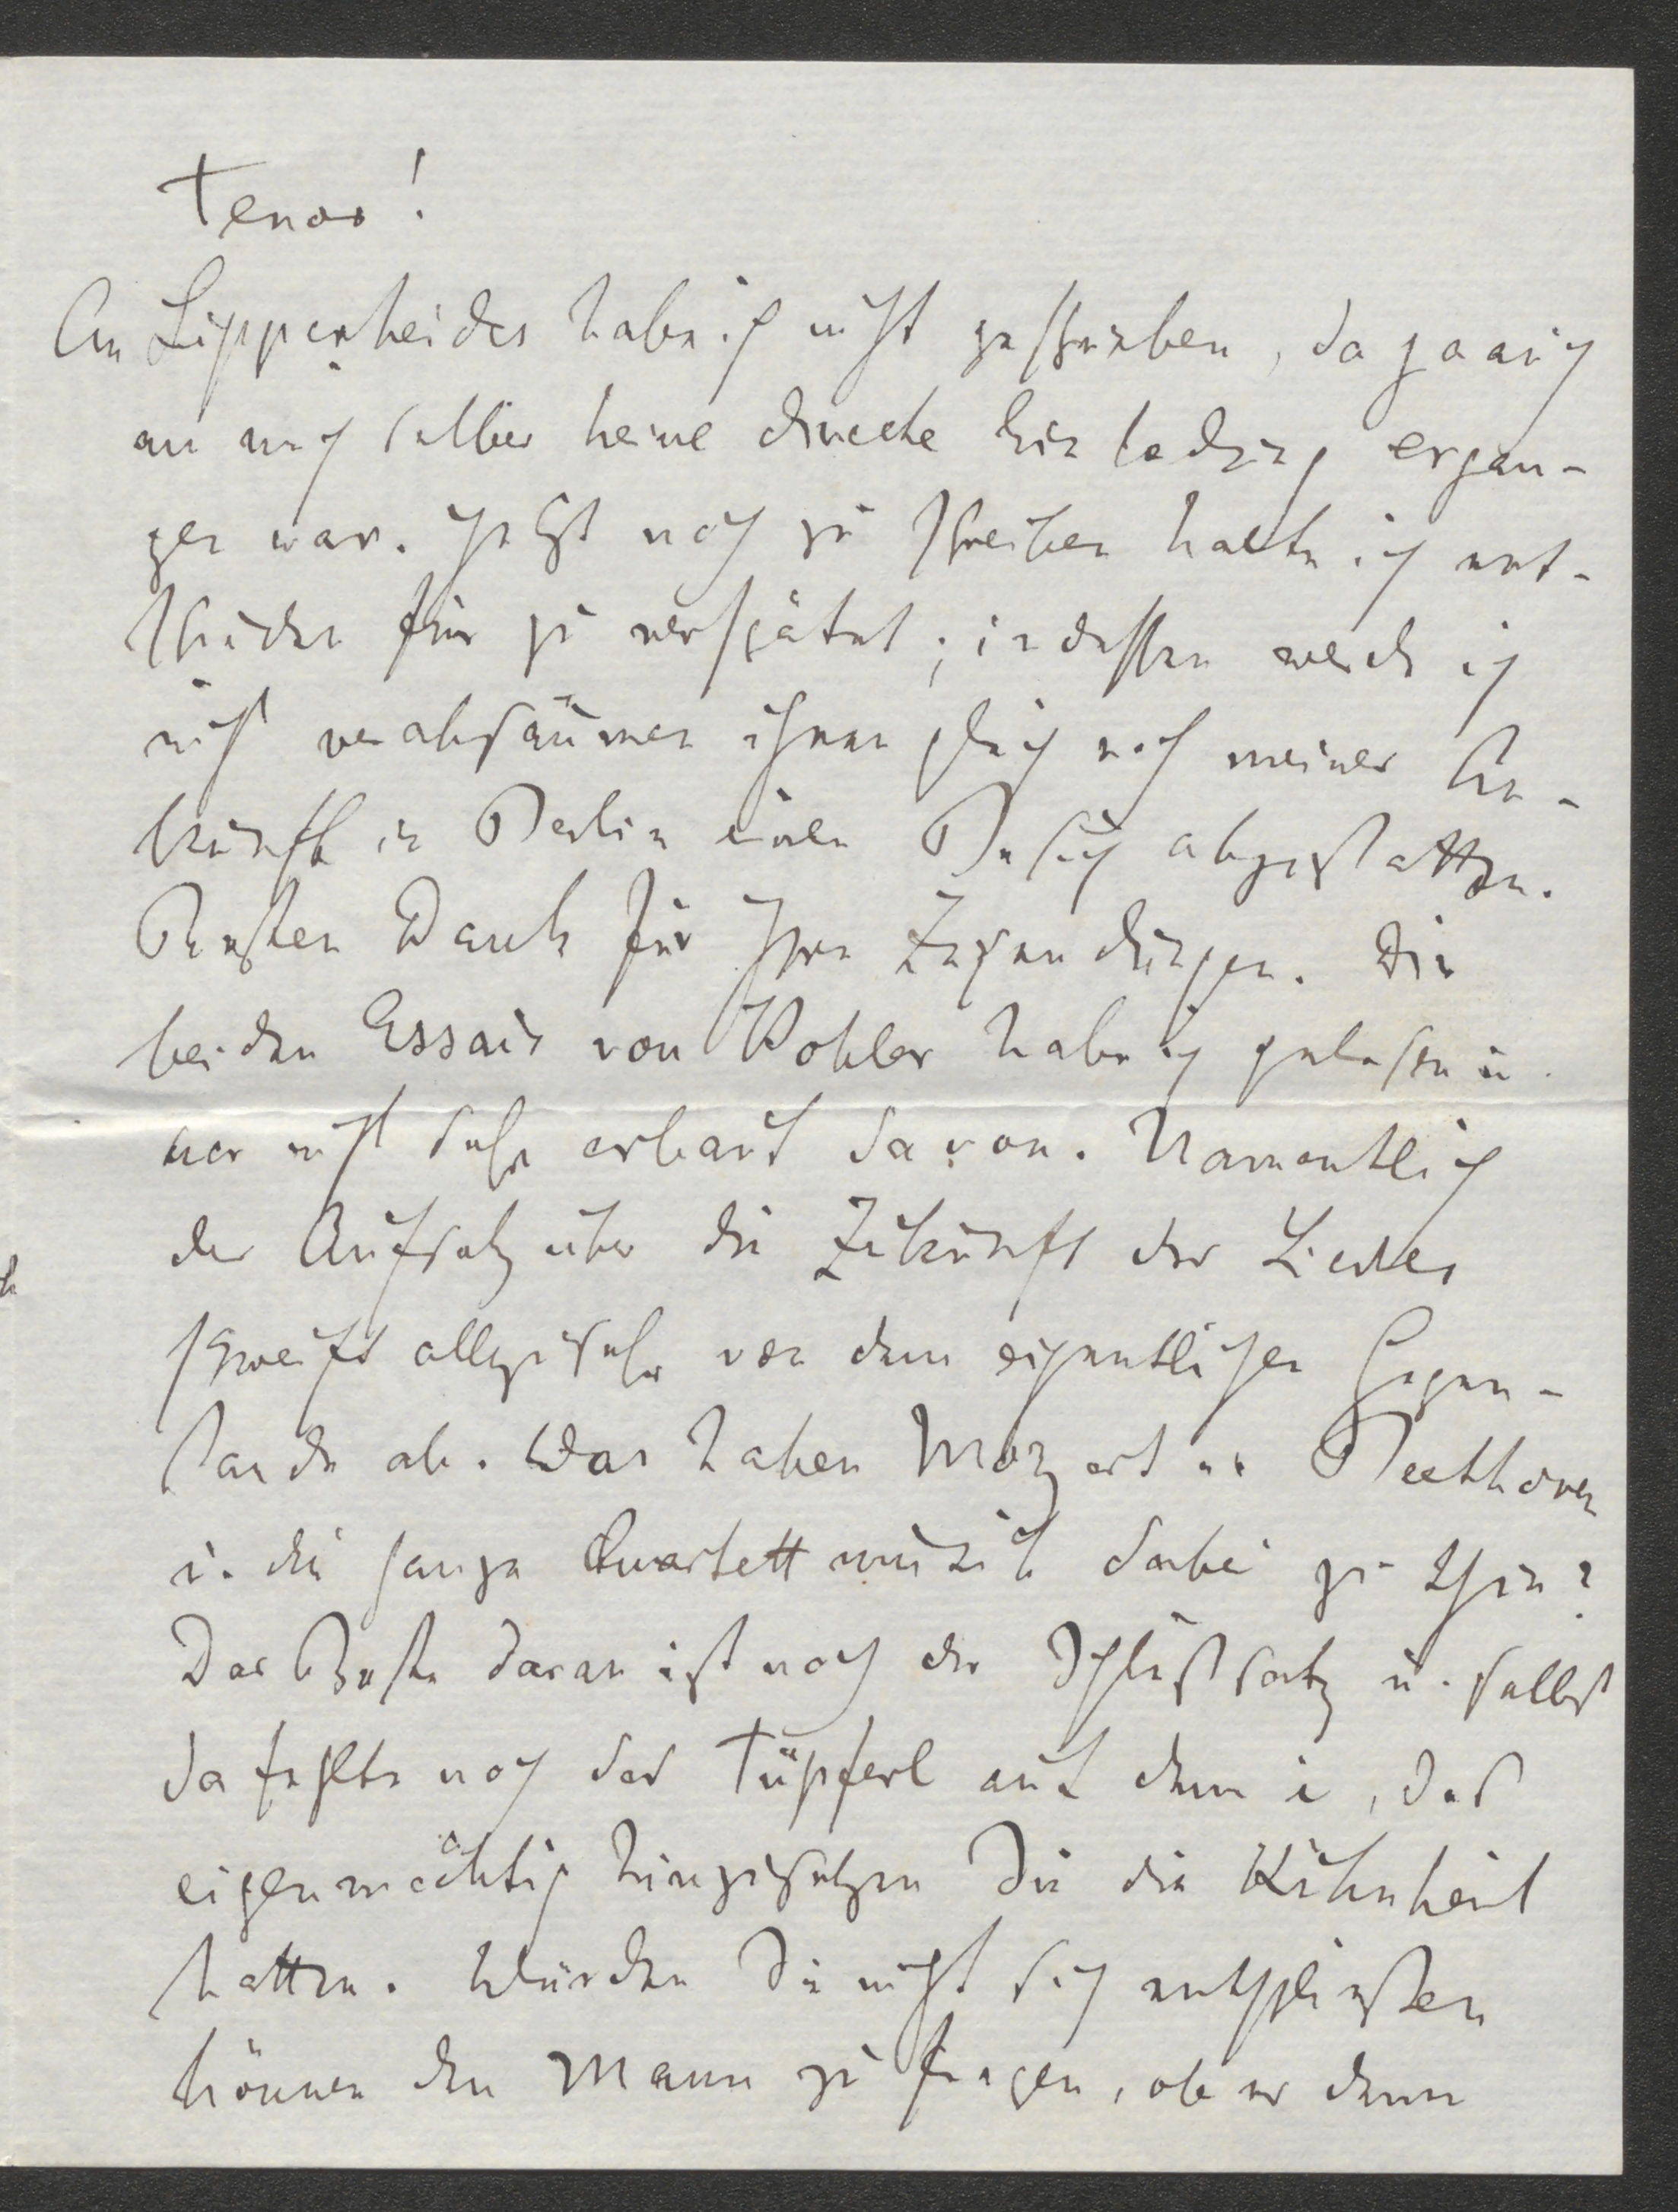 Tenor!
An Lipperheides habe ich nicht geschrieben, da ja an
an mich selber keine directe Einladung ergan-
gen war. Jetzt noch zu schreiben halte ich ent-
schieden für zu verspätet; indessen werde ich
nicht verabsäumen ihnen gleich nach meiner An-
kunft in Berlin einen Besuch abzustatten.
Besten Dank für Ihre Zusendungen. Die
beiden Essais von Kohler habe ich gelesen u.
war nicht sehr erbaut davon. Namentlich
der Aufsatz über die Zukunft des Liedes
schweift allzusehr von dem eigentlichen Gegen-
stande ab. Was haben Mozart u. Beethoven
u. die ganze Quartettmusik dabei zu thun?
Das Beste daran ist noch der Schlußsatz u. selbst
da fehlte noch das Tüpferl auf dem i, das
eigenmächtig hinzusetzen Sie die Kühnheit
hatten. Würden Sie nicht sich entschließen
können den Mann zu fragen, ob er denn